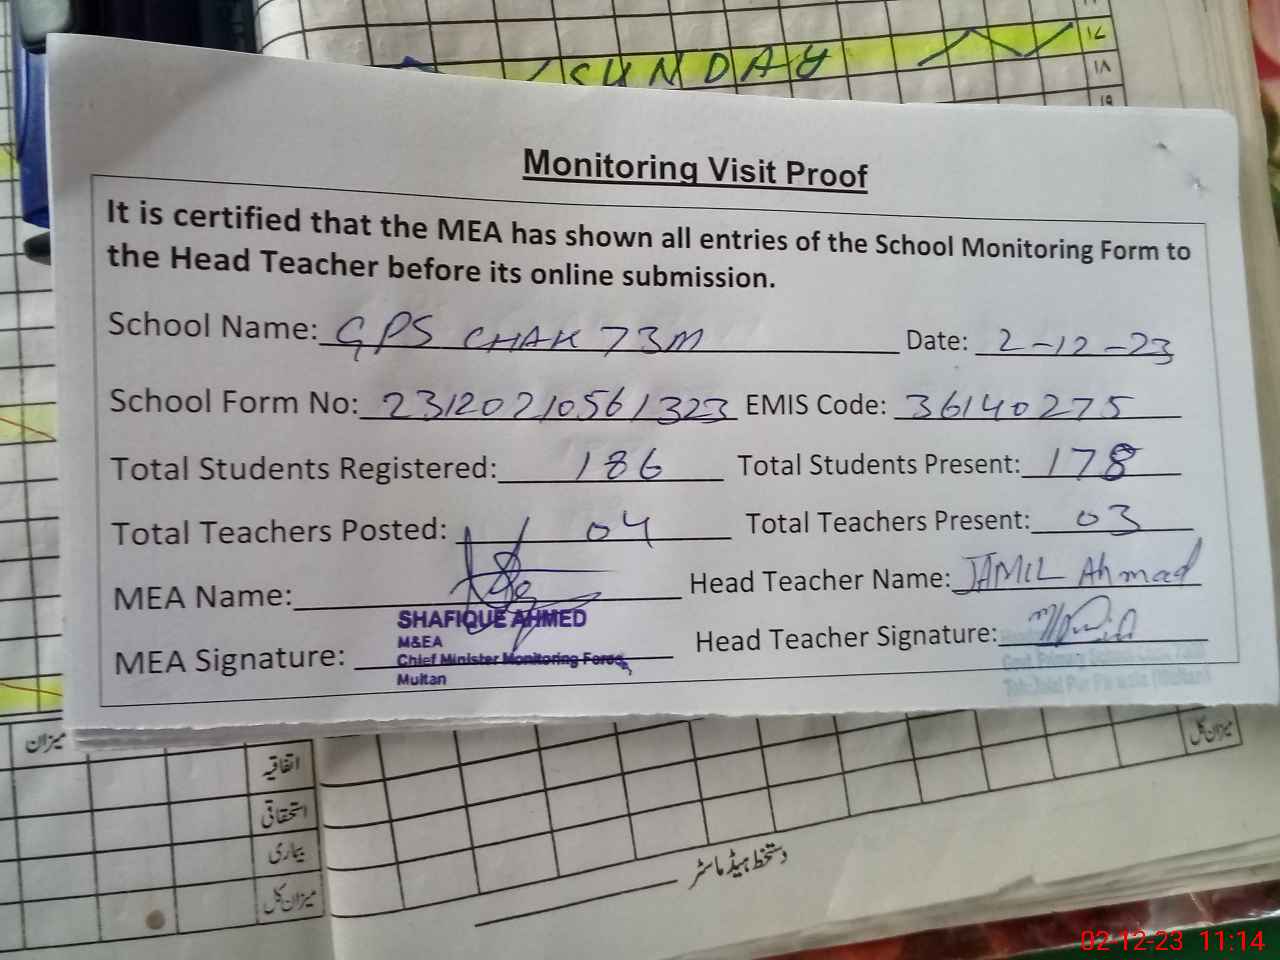 ۱۷
SUNDAY
۱۸
۱۹
Monitoring Visit Proof
It is certified that the MEA has shown all entries of the School Monitoring Form to
the Head Teacher before its online submission.
School Name: GPS CHAK 73M Date: 2-12-23
School Form No: 23120210561323 EMIS Code: 36140275
Total Students Registered: 186 Total Students Present: 178
Total Teachers Posted: 04 Total Teachers Present: 03
MEA Name: Head Teacher Name: JAMIL Ahmad
SHAFIQUE AHMED
M&EA
MEA Signature: Head Teacher Signature:
Chief Minister Monitoring Force,
Multan
میزان
اتفاقیہ
استحقاقی
بیماری
میزان کل
میزان کل
دستخط ہیڈ ماسٹر
02-12-23 11:14